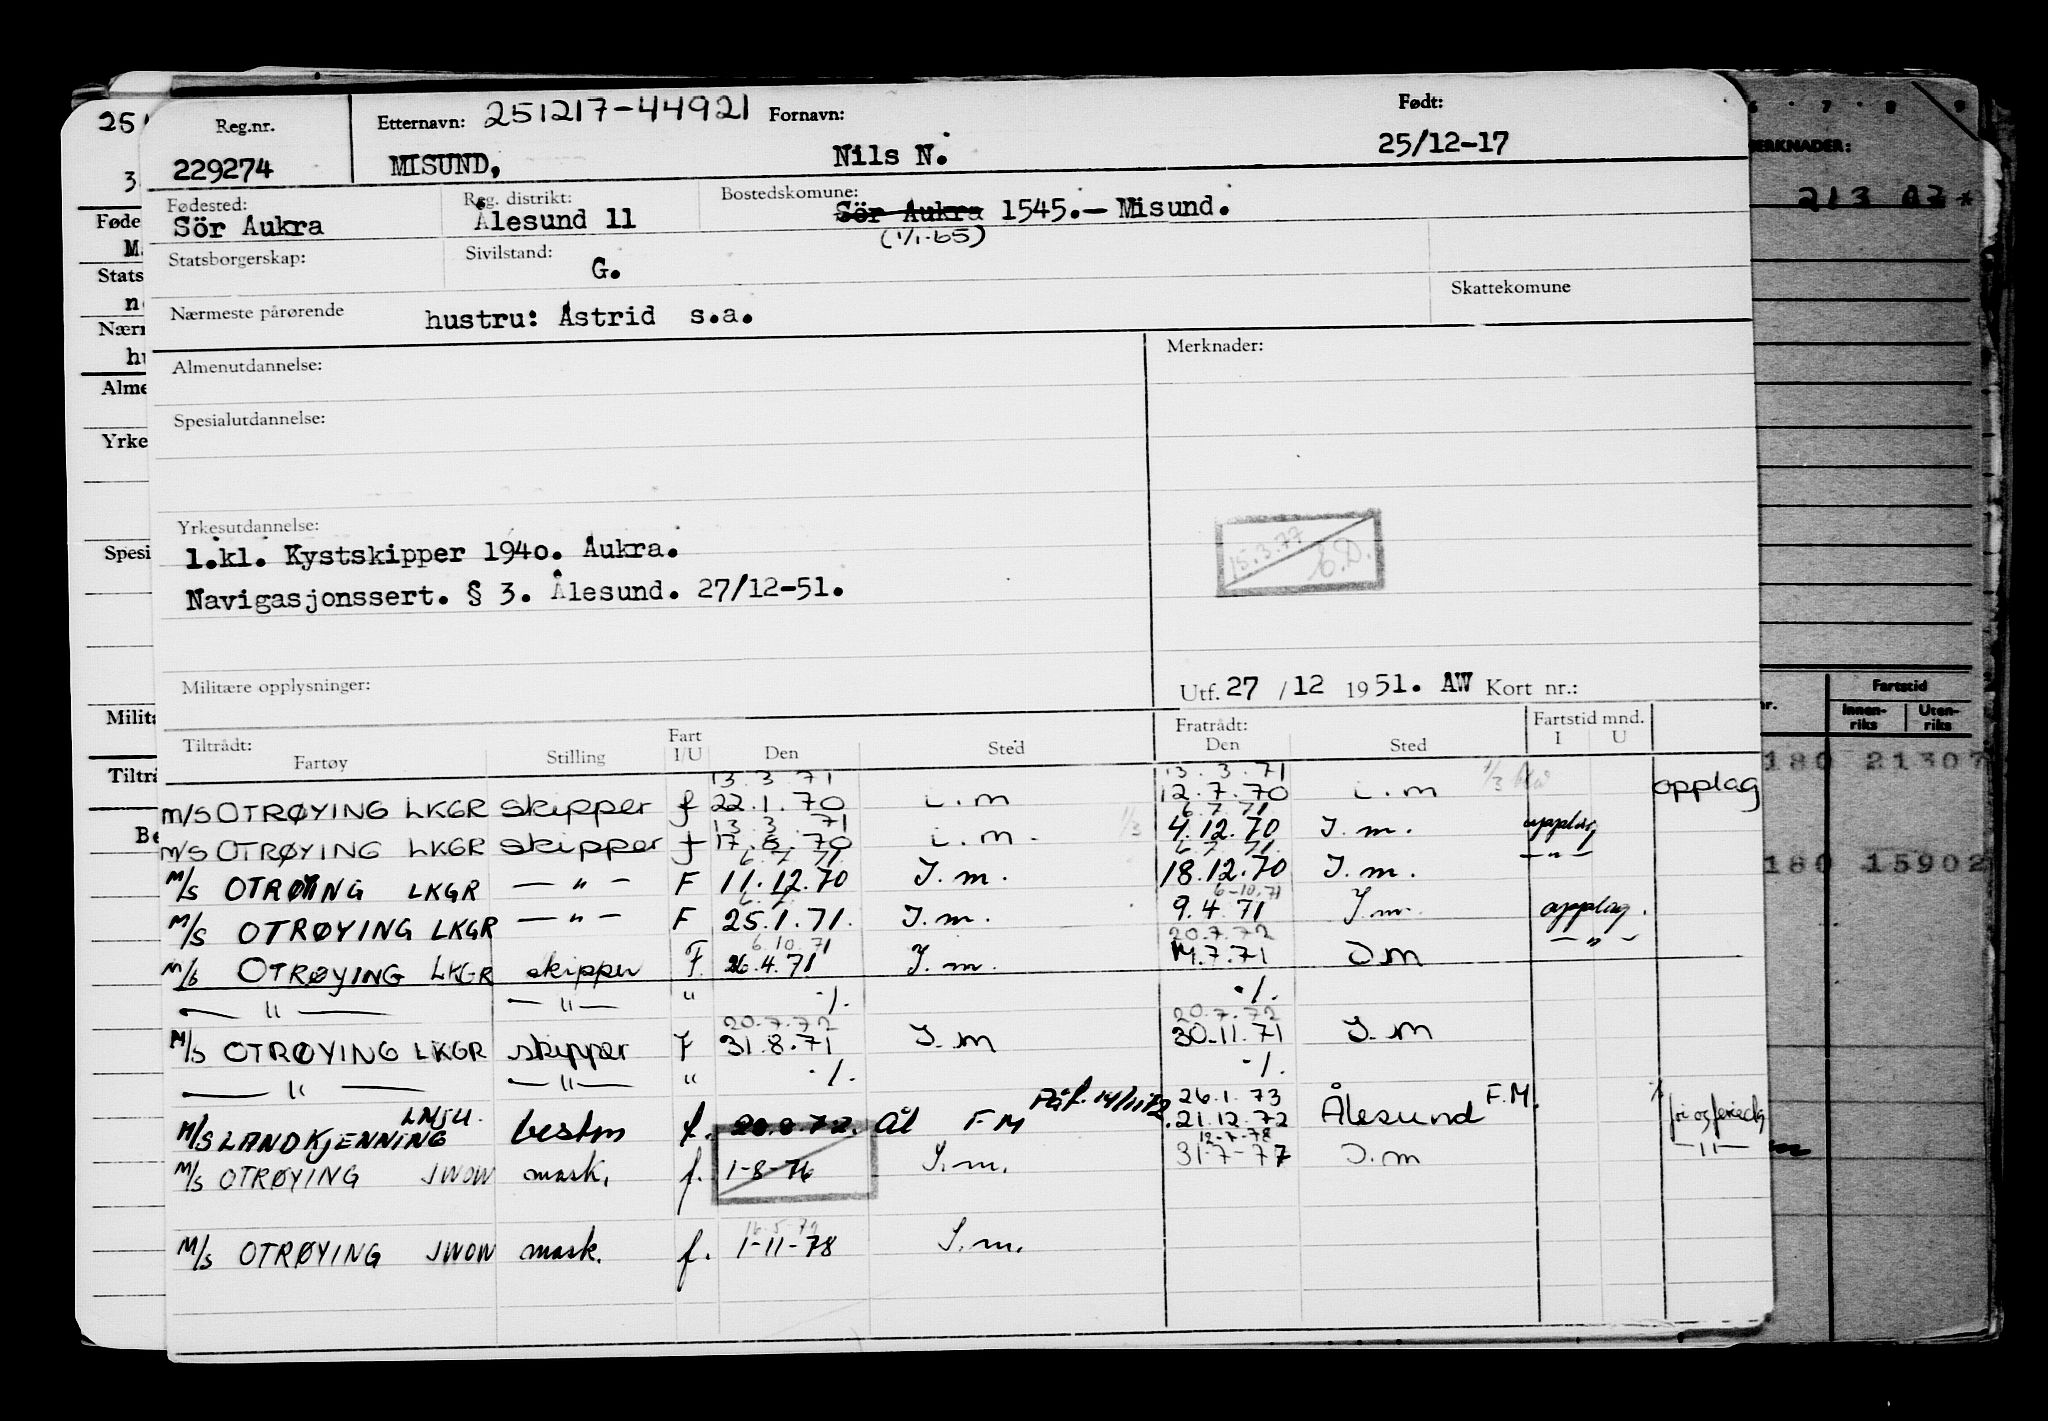 Reg.nr. Etternavn: 251217-44921 Fornavn: Født:
229274 MISUND, Nils N. 25/12-17
Fødested: Reg. distrikt: Bostedskomune:
Sör Aukra Ålesund 11 Sör Aukra 1545.- Misund.
(1/1-65)
Statsborgerskap: Sivilstand: G.
Skattekomune
Nærmeste pårørende hustru: Astrid s.a.
Almenutdannelse: Merknader:
Spesialutdannelse:
Yrkesutdannelse:
1.kl. Kystskipper 1940. Aukra.
15.3.77
Navigasjonssert. § 3. Ålesund. 27/12-51.
Militære opplysninger: Utf. 27 /12 1951. AW Kort nr.:
Tiltrådt: Fart Fratrådt: Fartstid mnd.
Fartøy Stilling I/U Den Sted Den Sted I U
13.3.71 13.3.71
M/S OTRØYING LKGR skipper f 22.1.70 i.m 12.7.70 i.m opplag
13.3.71 6.7.71
M/S OTRØYING LKGR skipper f 17.8.70 i.m. 4.12.70 I.m. opplag
6.7.71 6.7.71
M/S OTRØYING LKGR — " — F 11.12.70 I.m. 18.12.70 I.m. — " —
6-10.71
M/S OTRØYING LKGR — " — F 25.1.71. I.m. 9.4.71 I.m. opplag.
6.10.71 20.7.72
M/S OTRØYING LKGR skipper F. 26.4.71 I.m. 14.7.71 I m — " —
— " — — " — " ·/. ·/.
20.7.72 20.7.72
M/S OTRØYING LKGR skipper F 31.8.71 I.m 30.11.71 I.m
— " — — " — " ·/. ·/.
LMJU. Påf. 14/11 72 26.1.73
M/S LANDKJENNING bestm f. 20.8.72. Ål F M 21.12.72 Ålesund F.M.
12-7-78
M/S OTRØYING JWOW mask. f. 1-8-76 I.m. 31-7-77 I.m — " —
16-5-79
M/S OTRØYING JWOW mask. f. 1-11-78 I.m.
MERKNADER:
213 02*
Fartstid
Innen-riks Uten-riks
180 21307
180 15902